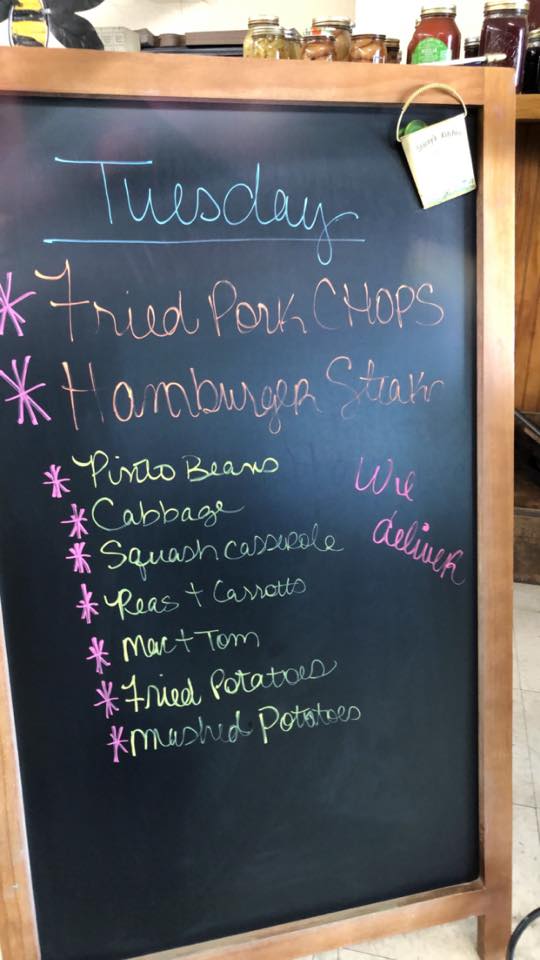 Tuesday
* Fried Pork CHOPS
* Hamburger Steak
* Pinto Beans
* Cabbage
* Squash casserole
* Peas + Carrotts
* Mac + Tom
* Fried Potatoes
* Mashed Potatoes
We
deliver